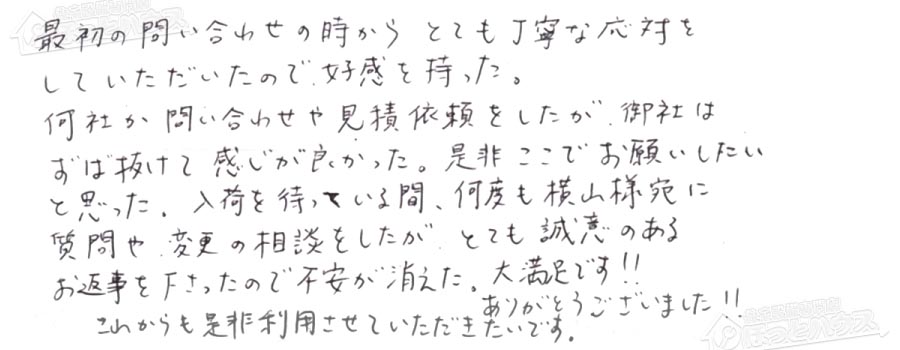 最初の問い合わせの時から とても丁寧な応対を
していただいたので、好感を持った。
何社か問い合わせや見積依頼をしたが、御社は
ずば抜けて感じが良かった。是非ここでお願いしたい
と思った。入荷を待っている間、何度も横山様宛に
質問や、変更の相談をしたが、とても誠意のある
お返事を下さったので不安が消えた。大満足です!!
ありがとうございました!!
これからも是非利用させていただきたいです。